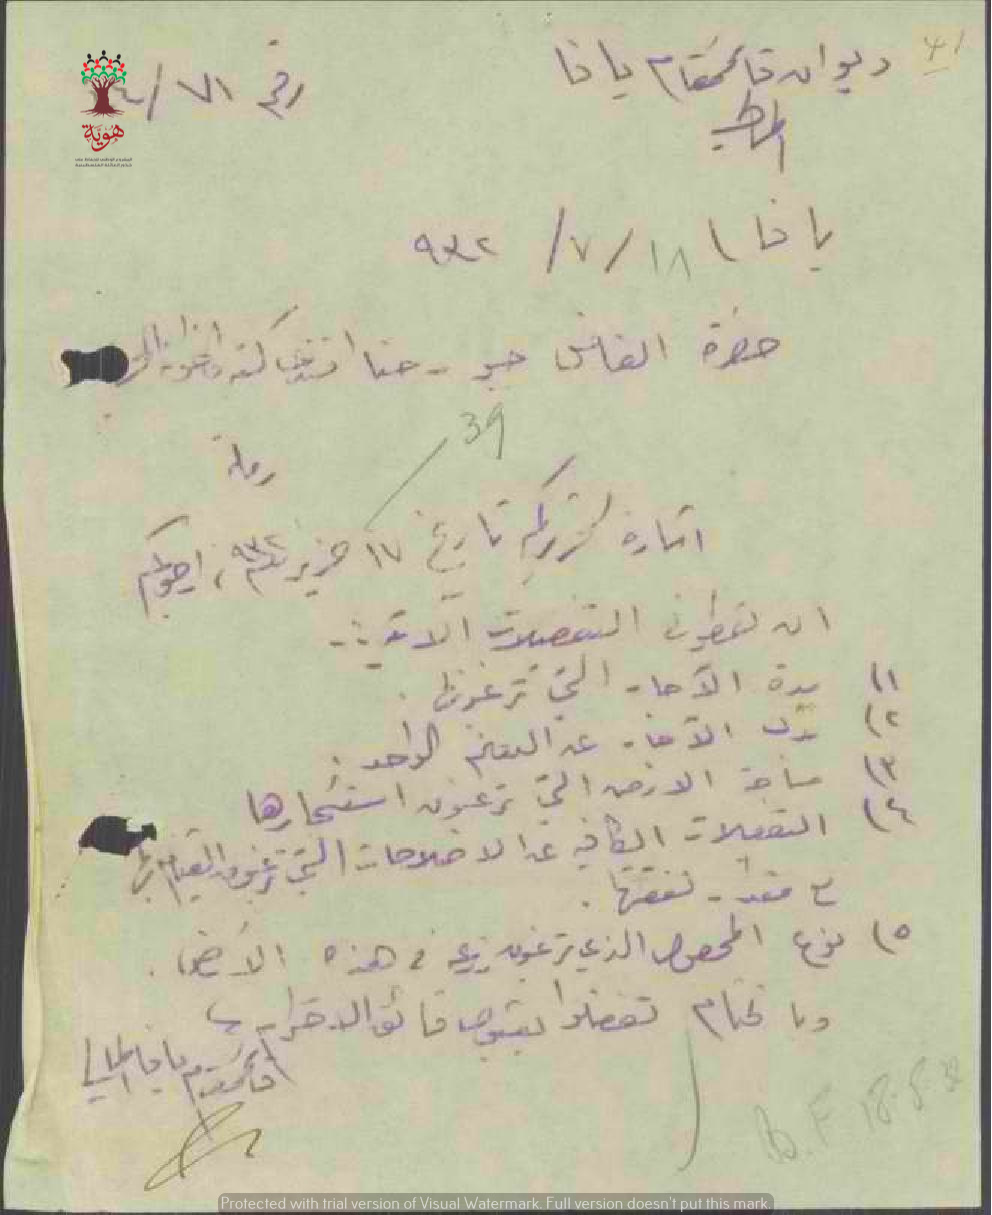 ٤١
ديوان قائمقام يافا
رقم ٧١/٤
يافا ) ١٨/ ٧/ ٩٣٢
هوية
حضرة الفاضل حنا افندي
39
رملة
اشارة لتحريركم تاريخ ١٧ حزيران ٩٣٢، ارجوكم
ان تعطوني التفصيلات الآتية :-
١) مدة الأجار التي ترغبونها .
٢) بدل الأجار عن الدونم الواحد .
٣) مساحة الارض التي ترغبون استئجارها
٤) التفصيلات الكافية عن الاصلاحات التي ترغبون القيام بها
مع مقدار نفقتها .
٥) نوع المحصول الذي ترغبون زرعه في هذه الأرض .
وبالختام تفضلوا بقبول فائق الاحترام
قائمقام يافا
B.F 18.8.32
Protected with trial version of Visual Watermark. Full version doesn't put this mark.